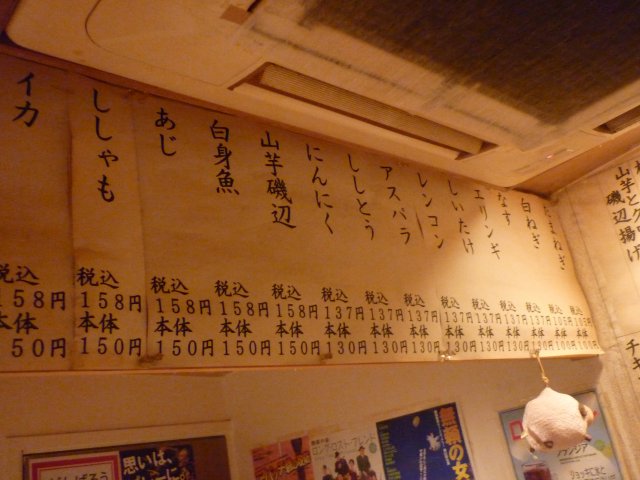 イカ
税込
158円
本体
150円
ししゃも
税込
158円
本体
150円
あじ
税込
158円
本体
150円
白身魚
税込
158円
本体
150円
山芋磯辺
税込
158円
本体
150円
にんにく
税込
137円
本体
130円
ししとう
税込
137円
本体
130円
アスパラ
税込
137円
本体
130円
レンコン
税込
137円
本体
130円
しいたけ
税込
137円
本体
130円
エリンギ
税込
137円
本体
130円
なす
税込
137円
本体
130円
白ねぎ
税込
137円
本体
130円
たまねぎ
税込
105円
本体
100円
山芋磯辺揚げ
チ
がんばろう
思いは、
ロング・ロスト・フレンド
無頼の女
ジョッキに氷と